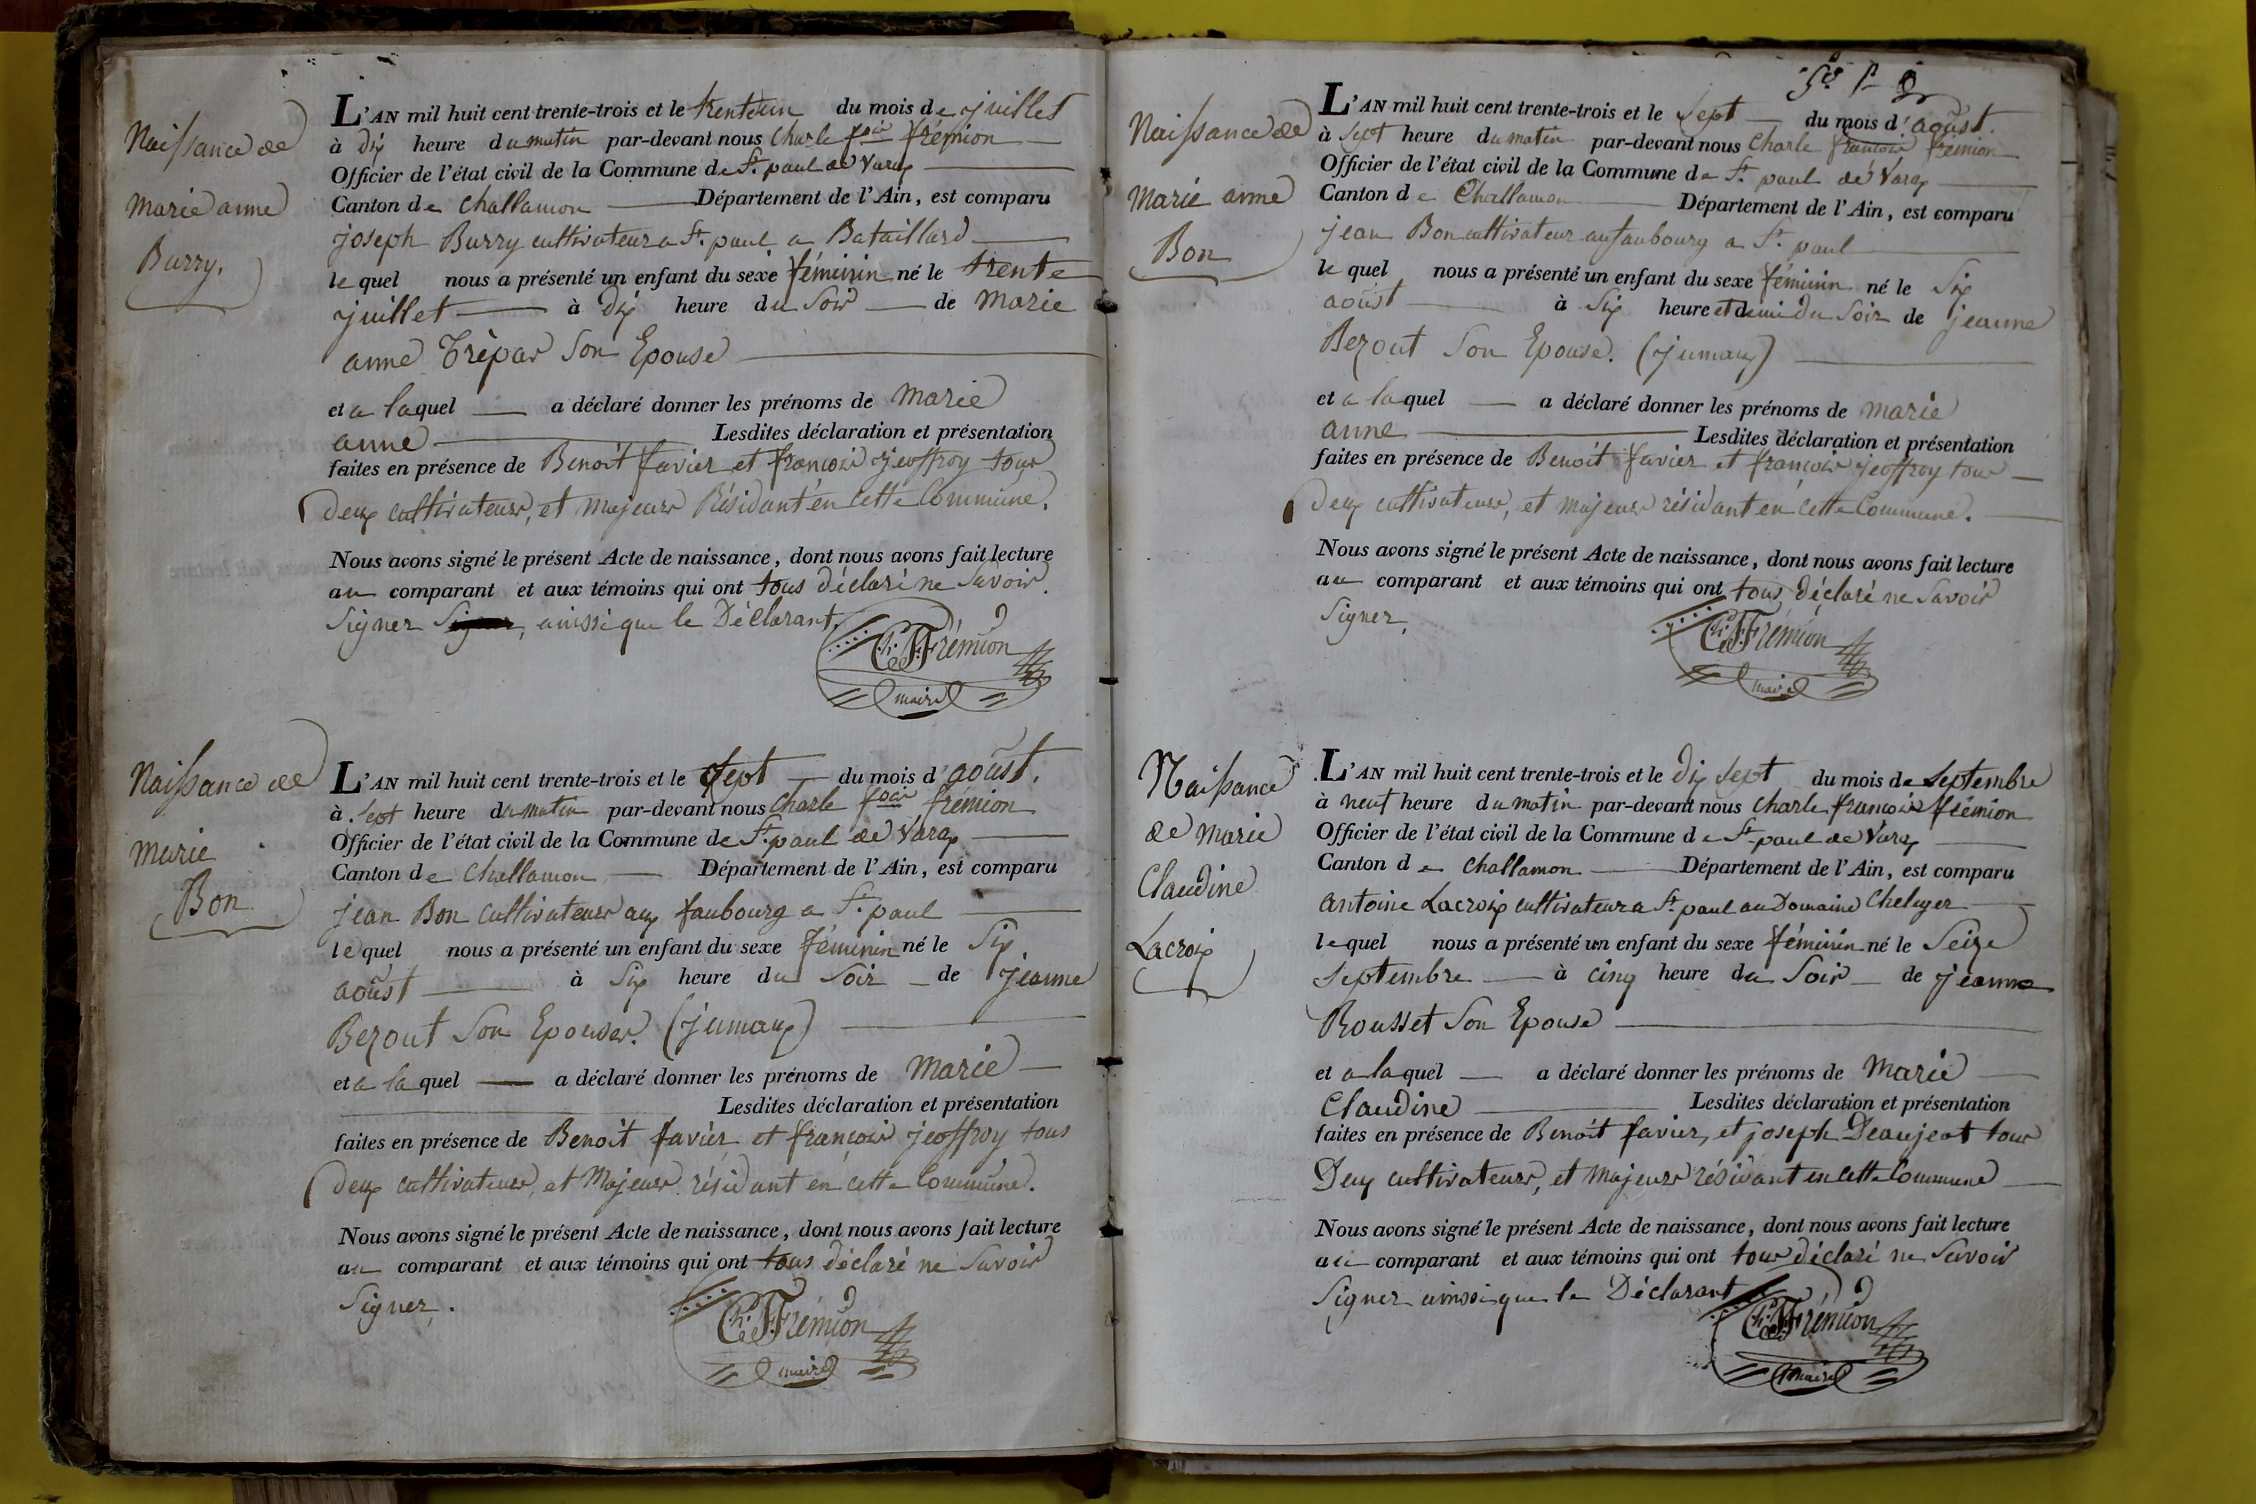 Naissance de
Marie anne
Burry.
L'AN mil huit cent trente-trois et le trenteun du mois de juillet
à dix heure du matin par-devant nous Charle fcois frémion
Officier de l'état civil de la Commune de St. paul de Varax
Canton de Challamon Département de l'Ain, est comparu
joseph Burry cultivateur a St. paul a Bataillard
le quel nous a présenté un enfant du sexe féminin né le trente
juillet à dix heure du Soir de Marie
anne Trèpar Son Epouse
et a laquel a déclaré donner les prénoms de Marie
anne Lesdites déclaration et présentation
faites en présence de Benoit favier et francois jeoffroy tous
deux cultivateurs, et Majeurs Résidant en cette Commune.
Nous avons signé le présent Acte de naissance, dont nous avons fait lecture
au comparant et aux témoins qui ont tous déclaré ne Savoir
Signer Signer, ainssi que le Déclarant.
Ch. F. Frémion
maire
Naissance de
Marie
Bon
L'AN mil huit cent trente-trois et le Sept du mois d'aoûst.
à Sept heure du matin par-devant nous Charle fcois frémion
Officier de l'état civil de la Commune de St. paul de Varax
Canton de Challamon Département de l'Ain, est comparu
jean Bon Cultivateur aux faubourg a St. paul
le quel nous a présenté un enfant du sexe féminin né le Six
aoûst à Six heure du Soir de jeanne
Bezout Son Epouse. (jumaux)
et a la quel a déclaré donner les prénoms de Marie
Lesdites déclaration et présentation
faites en présence de Benoit favier et francois jeoffroy tous
deux cultivateurs, et Majeurs résidant en cette Commune.
Nous avons signé le présent Acte de naissance, dont nous avons fait lecture
au comparant et aux témoins qui ont tous déclaré ne Savoir
Signer.
Ch. F. Frémion
maire
Naissance de
Marie anne
Bon
L'AN mil huit cent trente-trois et le Sept du mois d'aoûst.
à Sept heure du matin par-devant nous Charle francois frémion
Officier de l'état civil de la Commune de St. paul de Varax
Canton de Challamon Département de l'Ain, est comparu
jean Bon cultivateur au faubourg a St. paul
le quel nous a présenté un enfant du sexe féminin né le Six
aoûst à Six heure et demi du Soir de jeanne
Bezout Son Epouse. (jumaux)
et a la quel a déclaré donner les prénoms de Marie
anne Lesdites déclaration et présentation
faites en présence de Benoit favier et francois jeoffroy tous
deux cultivateurs, et Majeurs résidant en cette Commune.
Nous avons signé le présent Acte de naissance, dont nous avons fait lecture
au comparant et aux témoins qui ont tous déclaré ne Savoir
Signer.
Ch. F. Frémion
maire
Naissance
de Marie
Claudine
Lacroix
L'AN mil huit cent trente-trois et le dix Sept du mois de Septembre
à neuf heure du matin par-devant nous Charle francois frémion
Officier de l'état civil de la Commune de St. paul de Varax
Canton de Challamon Département de l'Ain, est comparu
antoine Lacroix cultivateur a St. paul au Domaine
le quel nous a présenté un enfant du sexe féminin né le Seize
Septembre à cinq heure du Soir de jeanne
Rousset Son Epouse
et a laquel a déclaré donner les prénoms de Marie
Claudine Lesdites déclaration et présentation
faites en présence de Benoit favier, et joseph Deaujeat tous
Deux cultivateurs, et Majeurs résidant en cette Commune
Nous avons signé le présent Acte de naissance, dont nous avons fait lecture
au comparant et aux témoins qui ont tous déclaré ne Savoir
Signer ainssi que le Déclarant
Ch. F. Frémion
maire